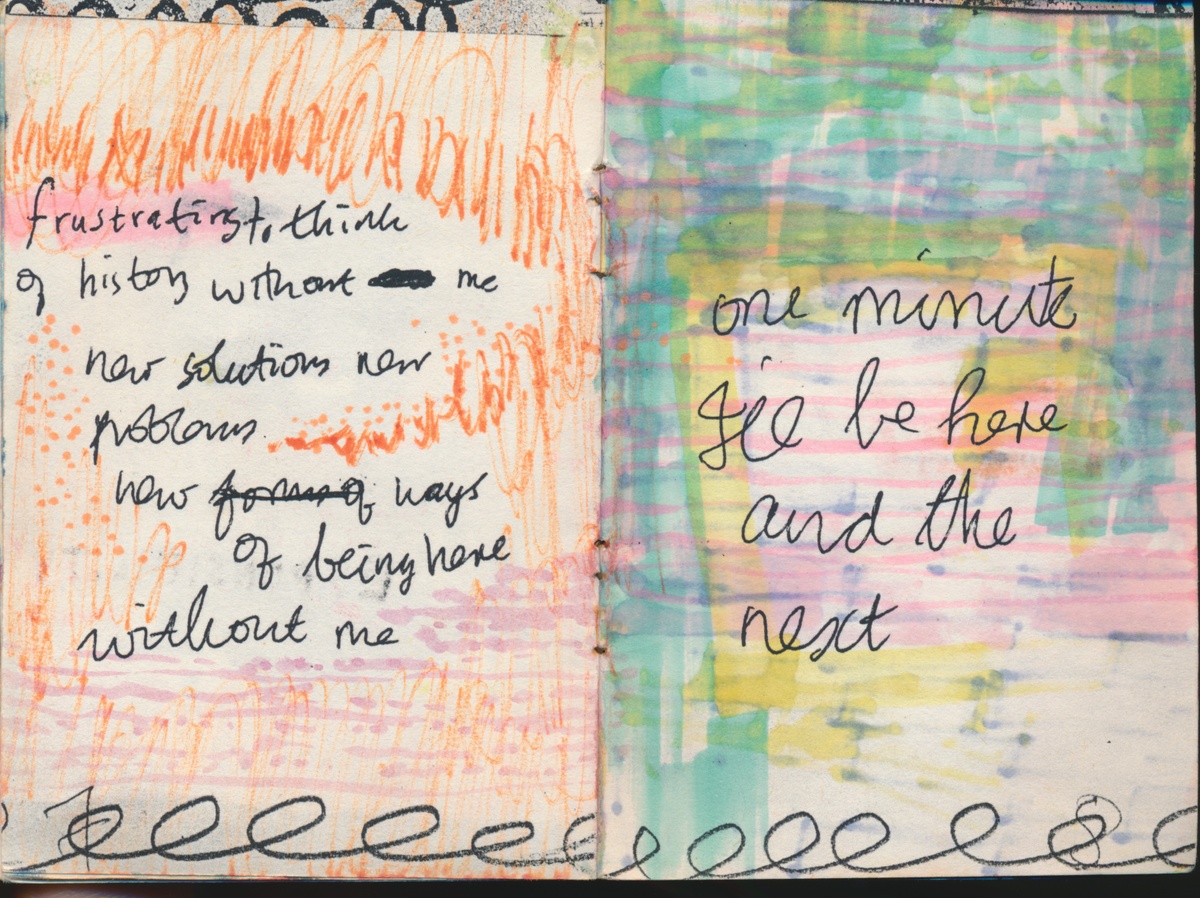 frustrating to think
of history without me
new solutions new
problems
new forms of ways
of being here
without me
7
one minute
I'll be here
and the
next
8